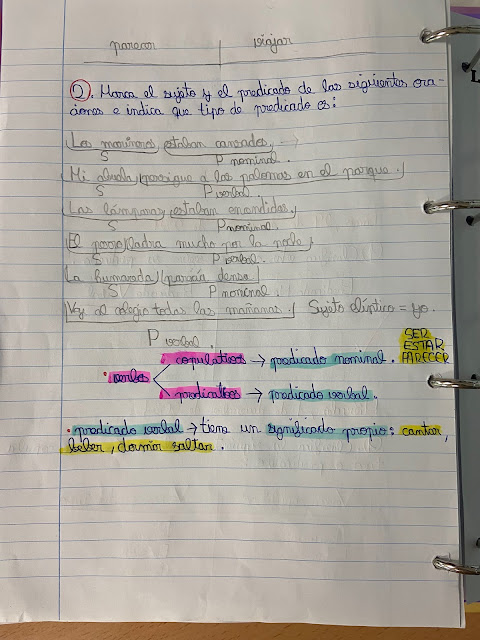 parecer viajar
2. Marca el sujeto y el predicado de las siguientes ora-
ciones e indica que tipo de predicado es:
Los marineros, estaban cansados.
S P nominal.
Mi abuela persigue a las palomas en el parque.
S P verbal.
Las lámparas, estaban encendidas.
S P nominal
El perro ladra mucho por la noche,
S P verbal.
La humareda parecía densa
S P nominal.
Voy al colegio todas las mañanas. Sujeto elíptico = yo.
P verbal.
SER
ESTAR
PARECER
copulativos → predicado nominal.
• verbos
predicativos → predicado verbal.
• predicado verbal → tiene un significado propio: cantar,
beber, dormir saltar.